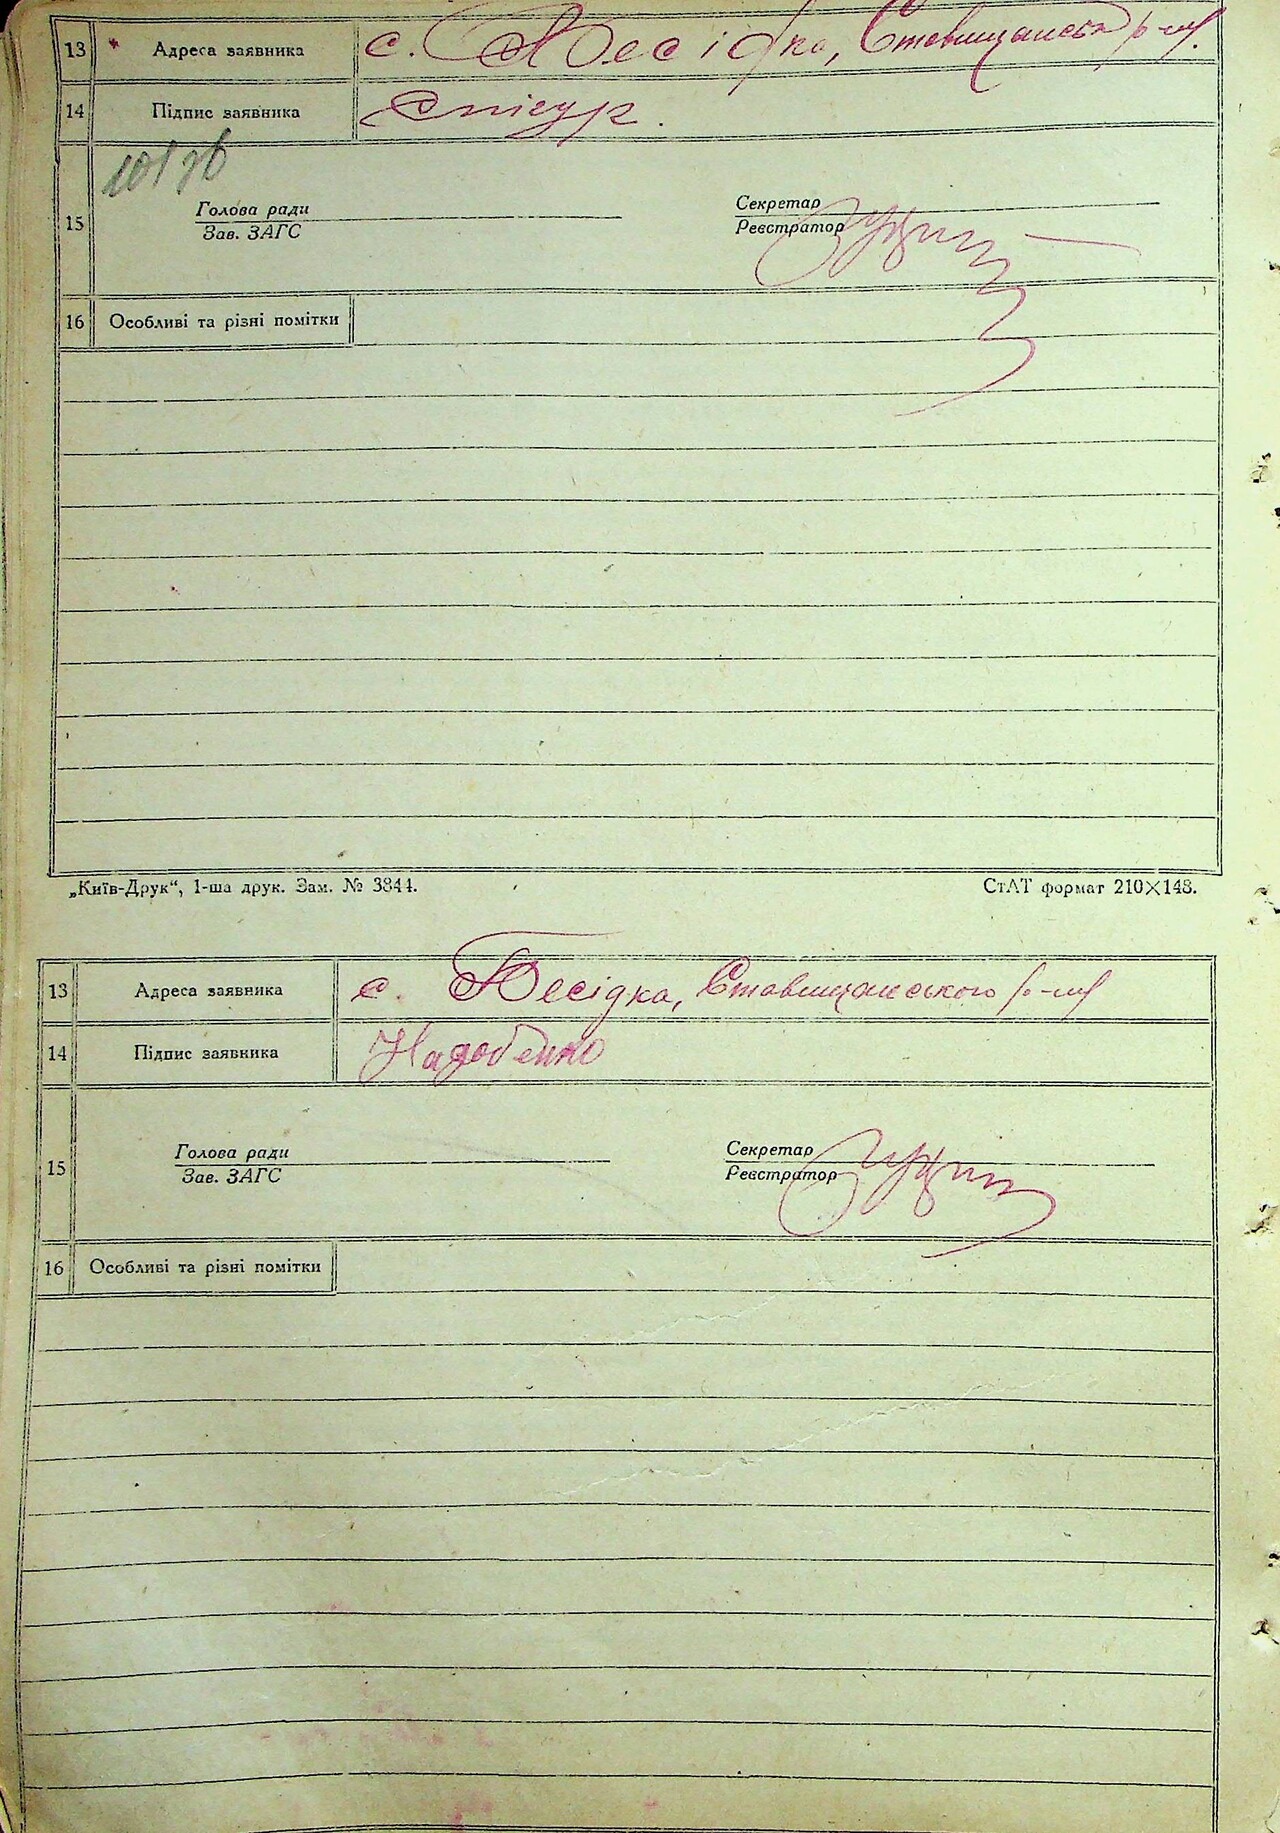 13 Адреса заявника с. Бесідка, Ставищанськ р-ну.
14 Підпис заявника
15 Голова ради Секретар
Зав. ЗАГС Реєстратор
16 Особливі та різні помітки
„Київ-Друк“, 1-ша друк. Зам. № 3844. СтАТ формат 210×148.
13 Адреса заявника с. Бесідка, Ставищанського р-ну
14 Підпис заявника Надобенко
15 Голова ради Секретар
Зав. ЗАГС Реєстратор
16 Особливі та різні помітки